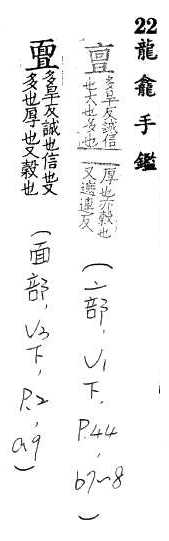 22龍龕手鑑
亶 多旱反誠信
也大也多也
厚也亦穀也
又邅連反
(亠部, V1下, P.44, b7~8)
多旱反誠也信也又
多也厚也又穀也
(面部, V3下, P.2, a9)